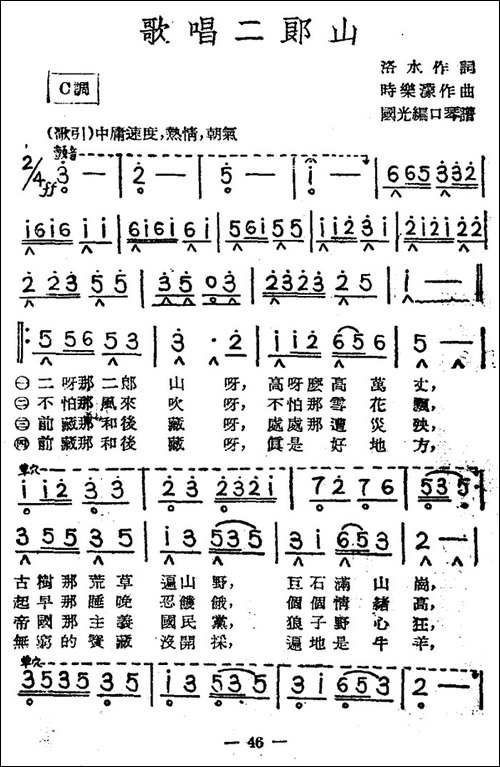 歌唱二郎山
洛水作詞
C調
時樂濛作曲
國光編口琴譜
(漱引)中庸速度,熱情,朝氣
2/4 ff 3 — | 2 — | 5 — | i — | 665 332 |
i6i6 i i | 6i6i 6 i | 56i5 5 5 | i i2 3 i | 2i2i 2 2 |
2 23 5 5 | 3 5 0 3 | 2323 2 5 | i — |
5 56 5 3 | 3 · 2 | i i2 656 | 5 — |
㊀二呀那二郎 山 呀, 高呀麼高 萬 丈,
㊁不怕那風來 吹 呀, 不怕那雪 花 飄,
㊂前藏那和後 藏 呀, 處處那遭 災 殃,
㊃前藏那和後 藏 呀, 眞是 好 地 方,
單穴
i i2 3 3 | 2 3 232i | 7 2 7 6 | 535 |
3 5 5 3 5 | i i 535 | 3 i 653 | 2 — |
古樹那荒草 遍山 野, 巨石滿 山 崗,
起早那睡晚 忍饑餓, 個個情 緒 高,
帝國那主義 國民黨, 狼子野 心 狂,
無窮的寶藏 沒開採, 遍地是 牛 羊,
單穴
3535 3 5 | i i 535 | 3 i 653 | 2 — |
— 46 —